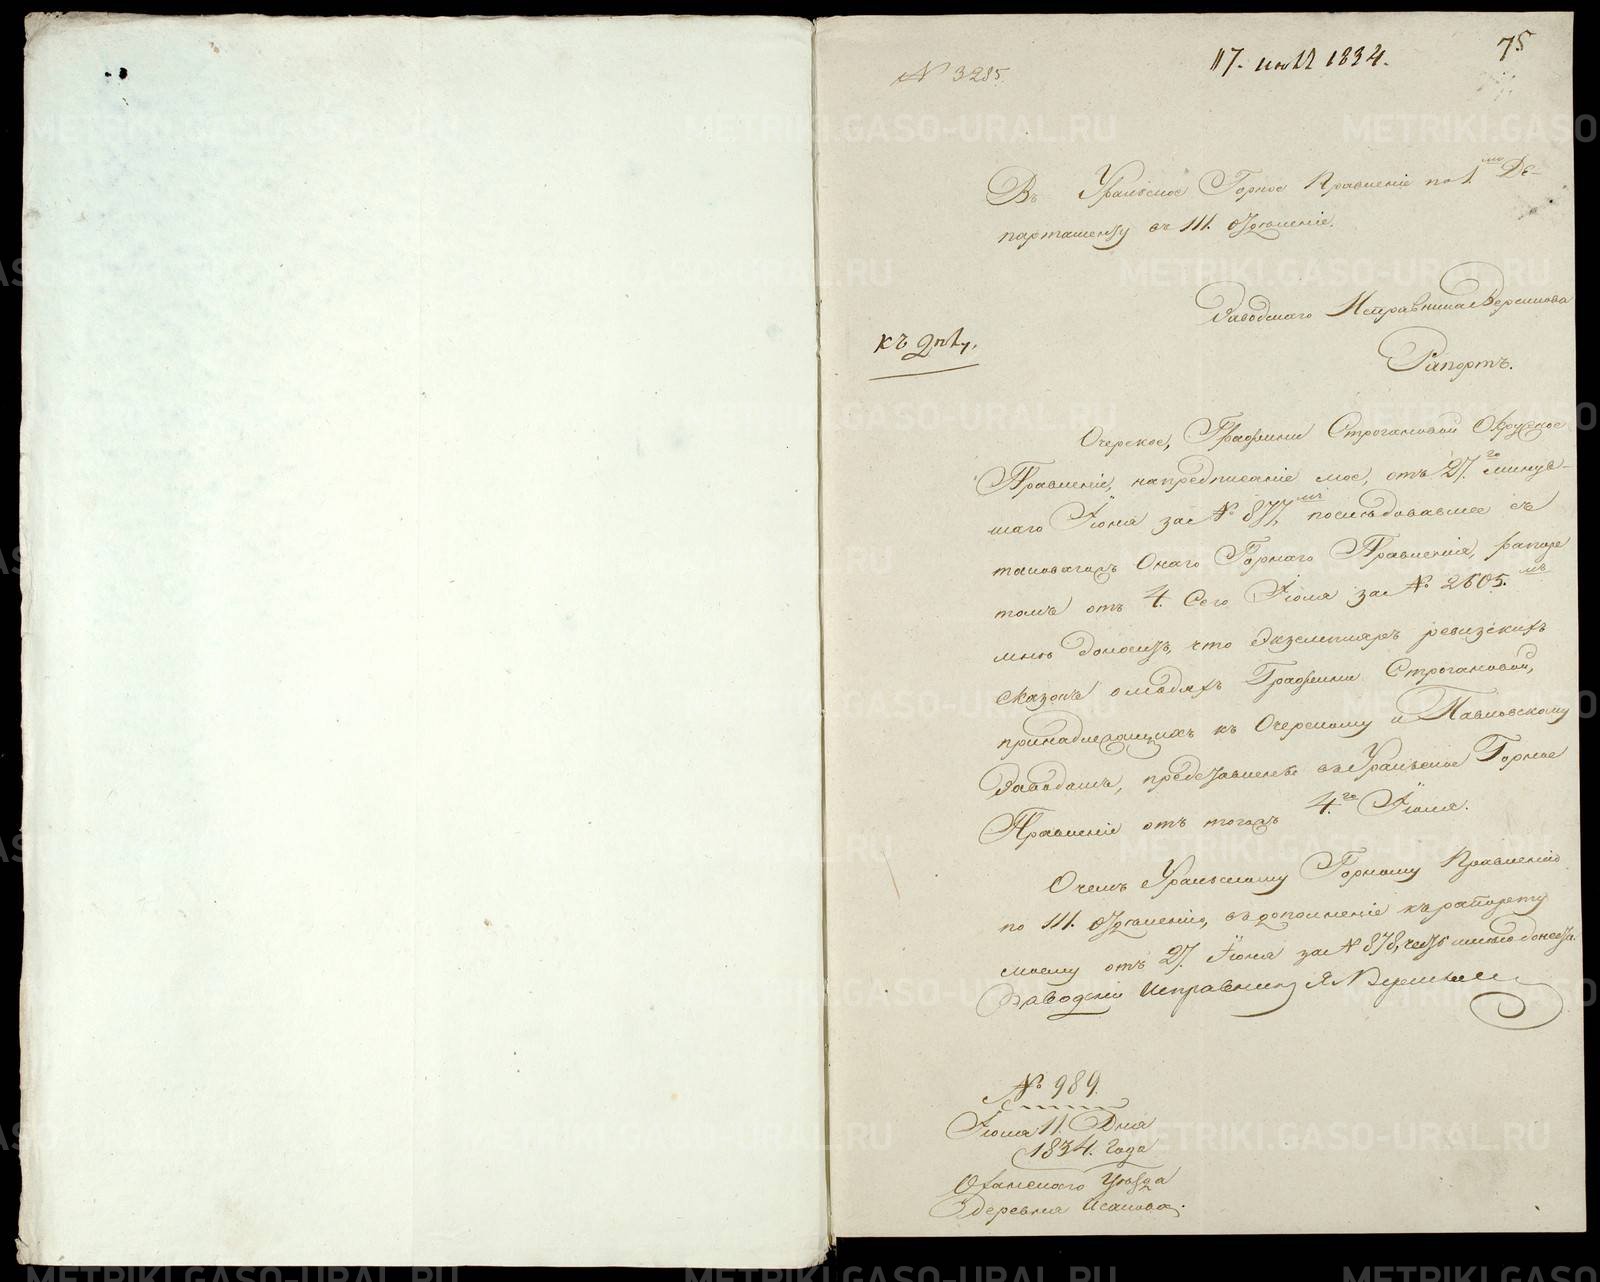 № 3285.
17. июля 1834.
75
Въ Уральское Горное Правленіе по 1.му Де-
партаменту въ III. Отдѣленіе.
Заводскаго Исправника
Рапортъ.
къ дѣлу.
Очерское, Графини Строгановой Окружное
Правленіе, на предписаніе мое, отъ 27.го минув-
шаго Іюня за № 877.мъ послѣдовавшее съ
таковагожъ Онаго Горнаго Правленія, рапор
томъ отъ 4. сего Іюля за № 2605.мъ
мнѣ доноситъ, что экземпляръ ревизскихъ
сказокъ о людяхъ Графини Строгановой,
принадлежащихъ къ Очерскому и Павловскому
Заводамъ, представленъ въ Уральское Горное
Правленіе отъ тогожъ 4.го Іюля.
О чемъ Уральскому Горному Правленію
по III. Отдѣленію, въ дополненіе къ рапорту
моему отъ 27. Іюня за № 878, честь имѣю донести.
Заводскій Исправникъ
№ 989.
Іюля 11. Дня
1834. года
Оханскаго Уѣзда
деревня Исакова.